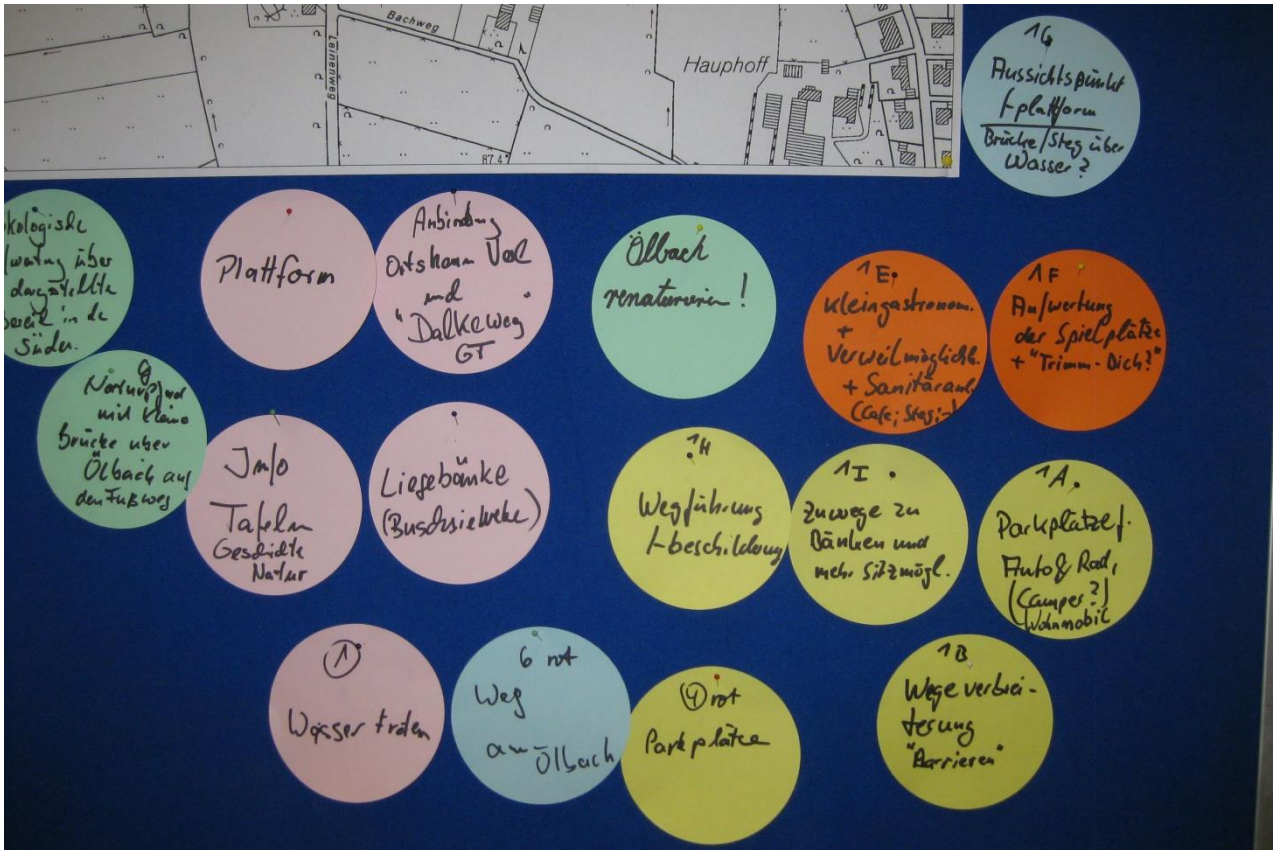 Bachweg
Leinenweg
Hauphoff
87.4
1G
Aussichtspunkt
+-plattform
Brücke/Steg über
Wasser?
kologische
über
dargestellte
bereich in de
Süden.
Plattform
Anbindung
Ortskern Verl
und
"Dalkeweg
GT
Ölbach
renaturieren!
1E
Kleingastronom.
+
Verweilmöglichk.
+ Sanitäranl.
(Cafe; Steg;-)
1F
Aufwertung
der Spielplätze
+ "Trimm-Dich?"
mit kleine
Brücke über
Ölbach auf
den Fußweg
Info
Tafeln
Geschichte
Natur
Liegebänke
1H
Wegführung
+-beschilderung
1I
Zuwege zu
Bänken und
mehr Sitzmögl.
1A
Parkplätze f.
Auto & Rad,
(Camper?)
Wohnmobil
1
Wasser treten
6 rot
Weg
am Ölbach
4 rot
Parkplätze
1B
Wegeverbrei-
terung
"Barrieren"